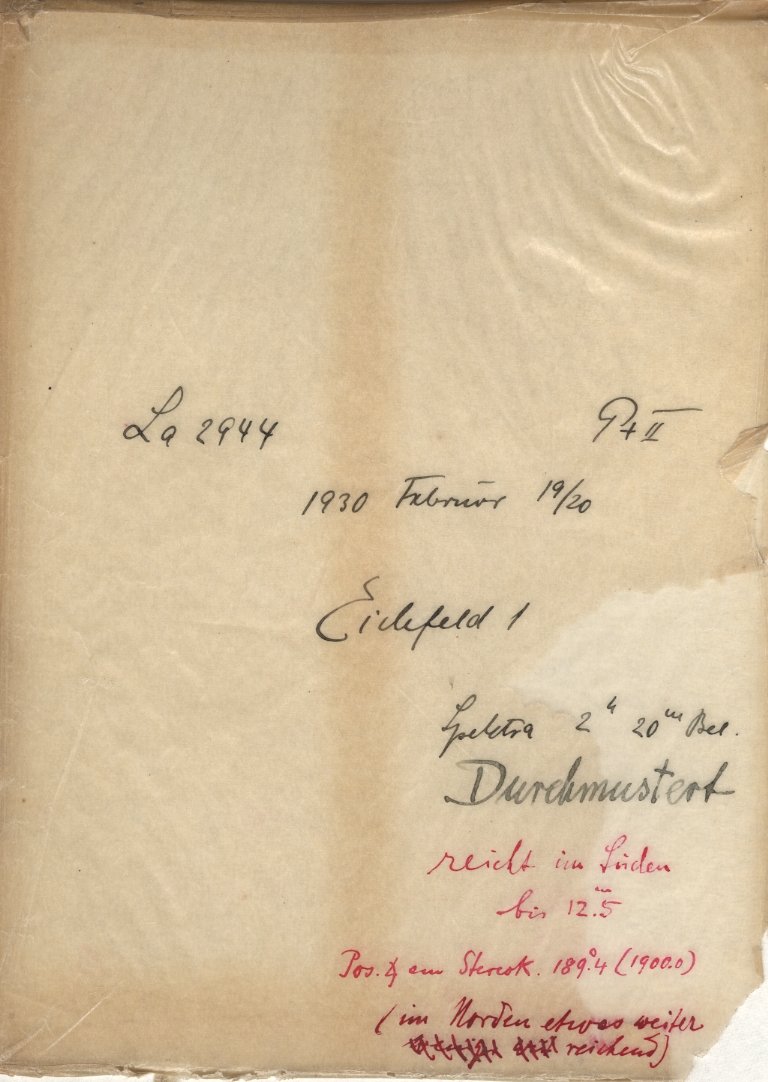 La 2944 Pt II
1930 Februar 19/20
Eichfeld 1
Spektra 2h 20m Bel.
Durchmustert
reicht im Süden
bis 12.m5
Pos. ∢ am Stereok. 189.°4 (1900.0)
(im Norden etwas weiter
reichend)